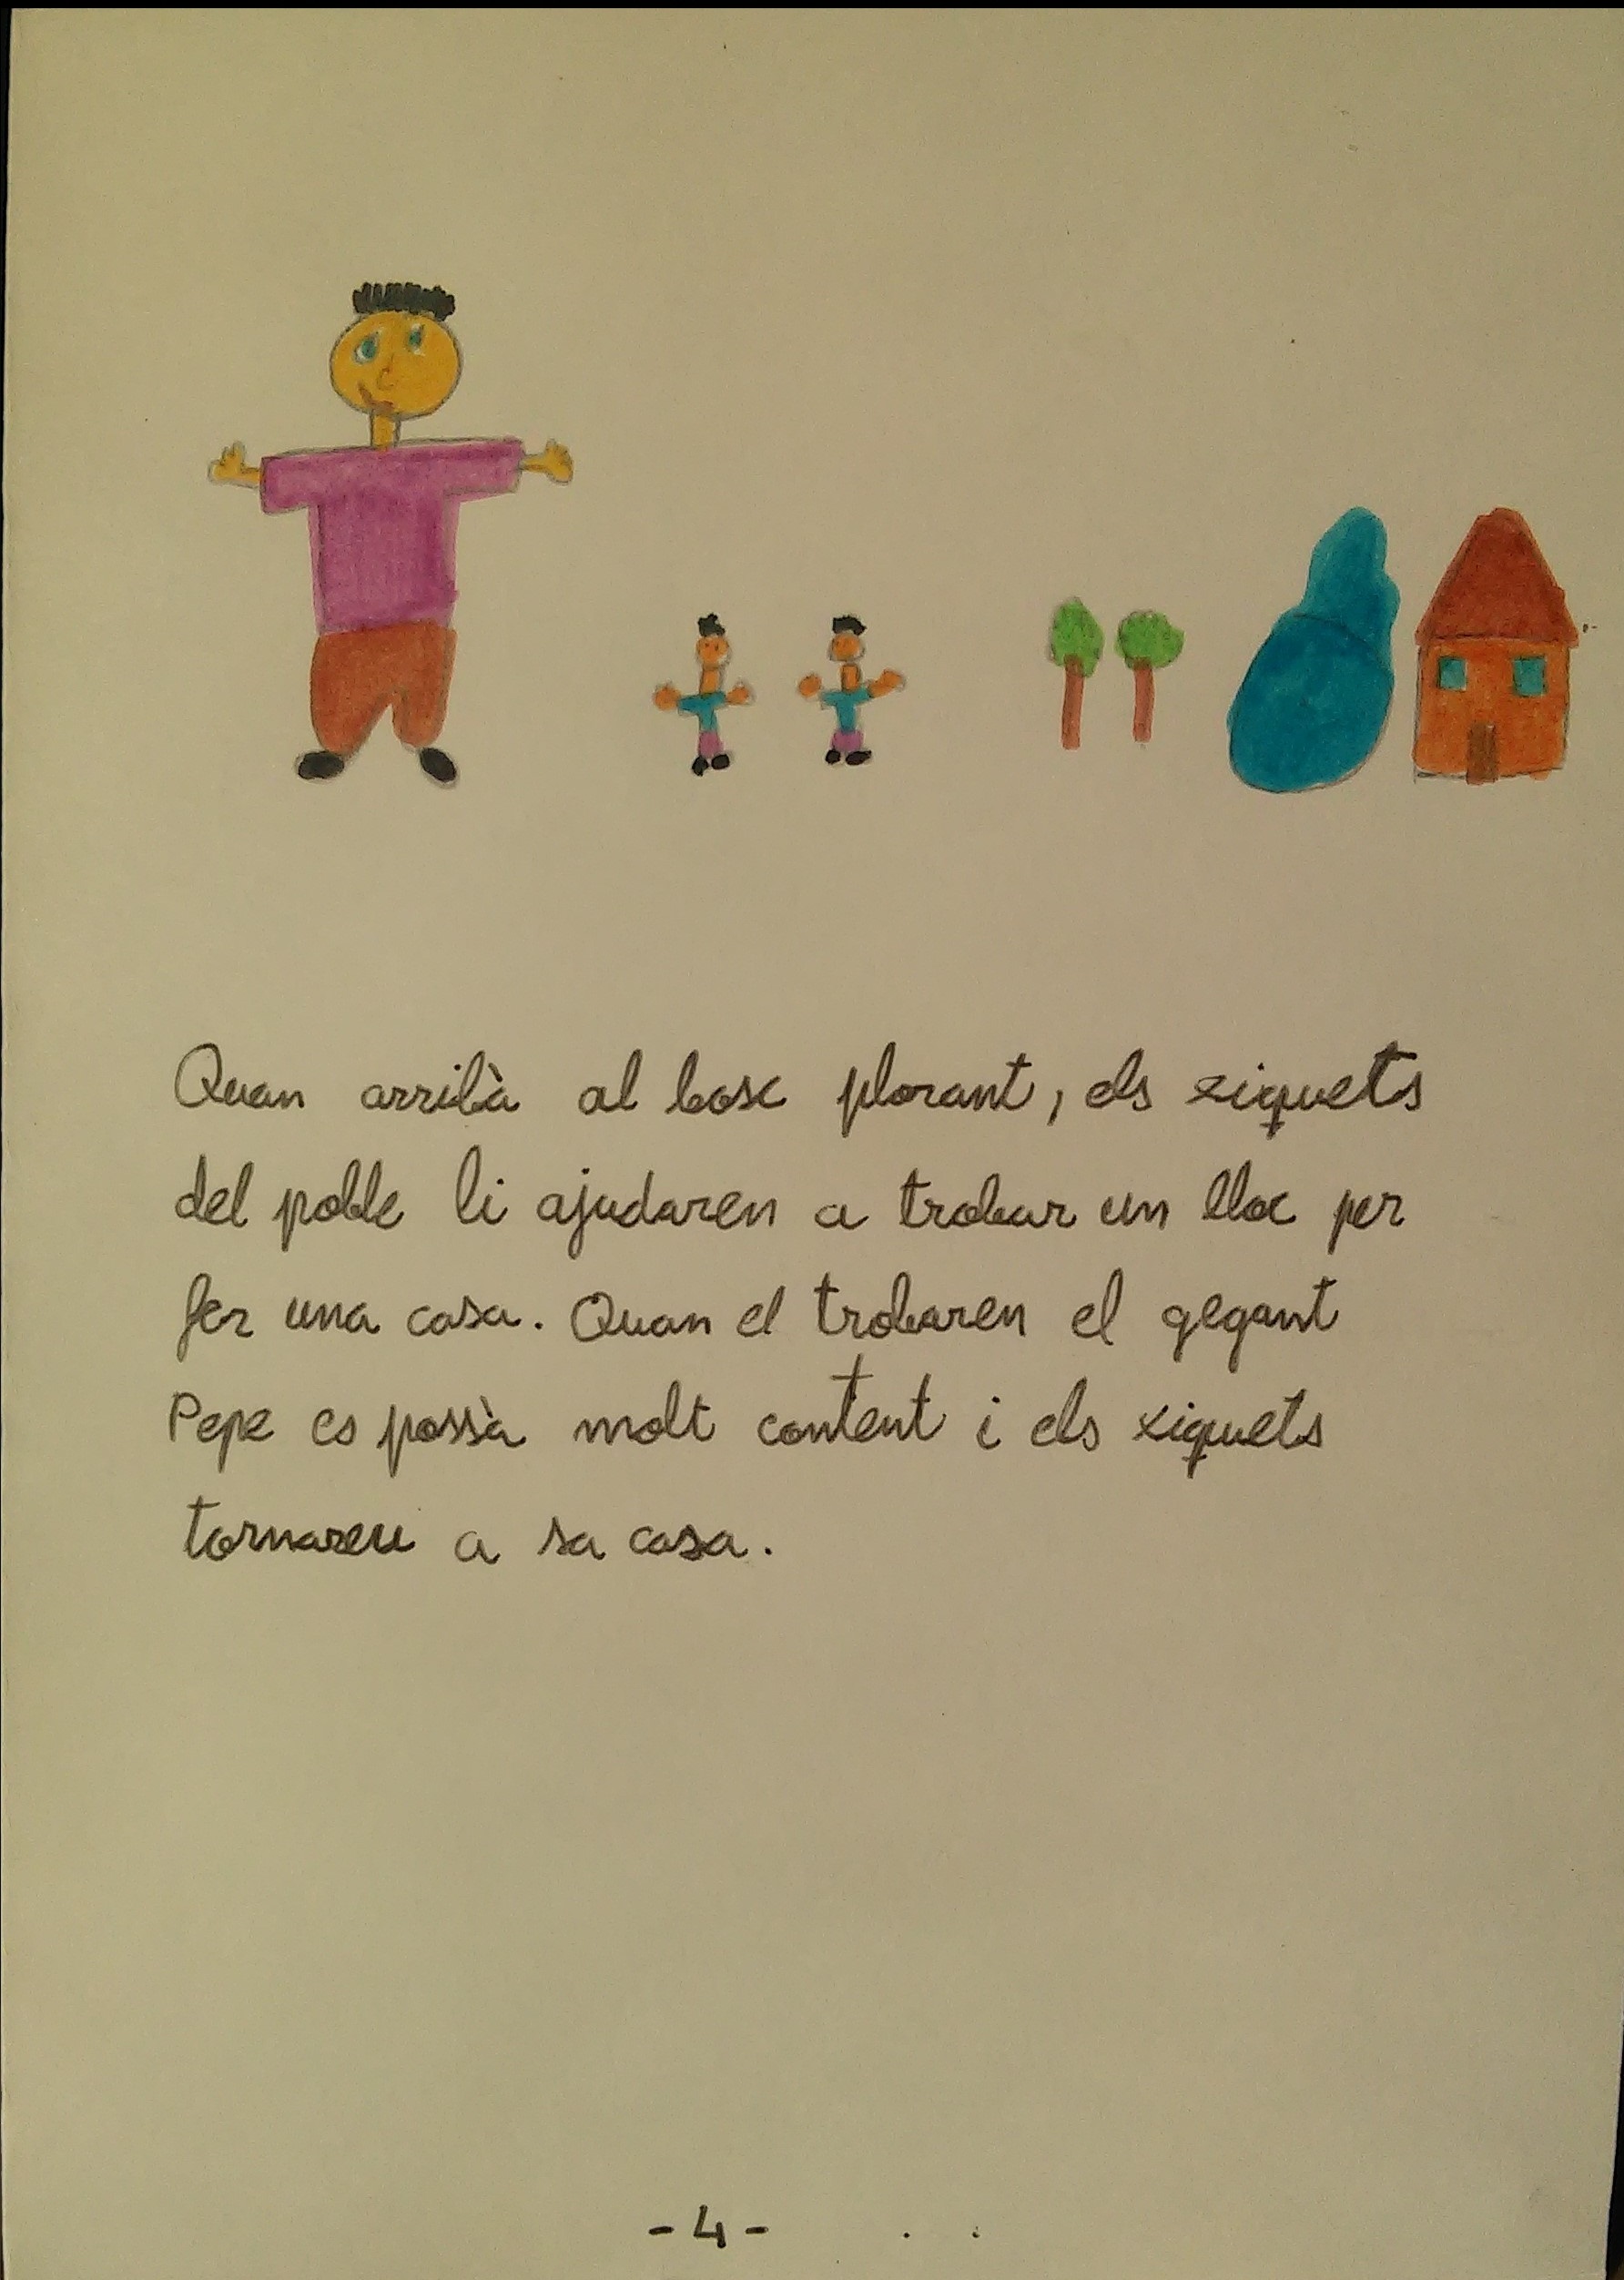 Quan arribà al bosc plorant, els xiquets
del poble li ajudaren a trobar un lloc per
fer una casa. Quan el trobaren el gegant
Pepe es possà molt content i els xiquets
tornaren a sa casa.
-4-